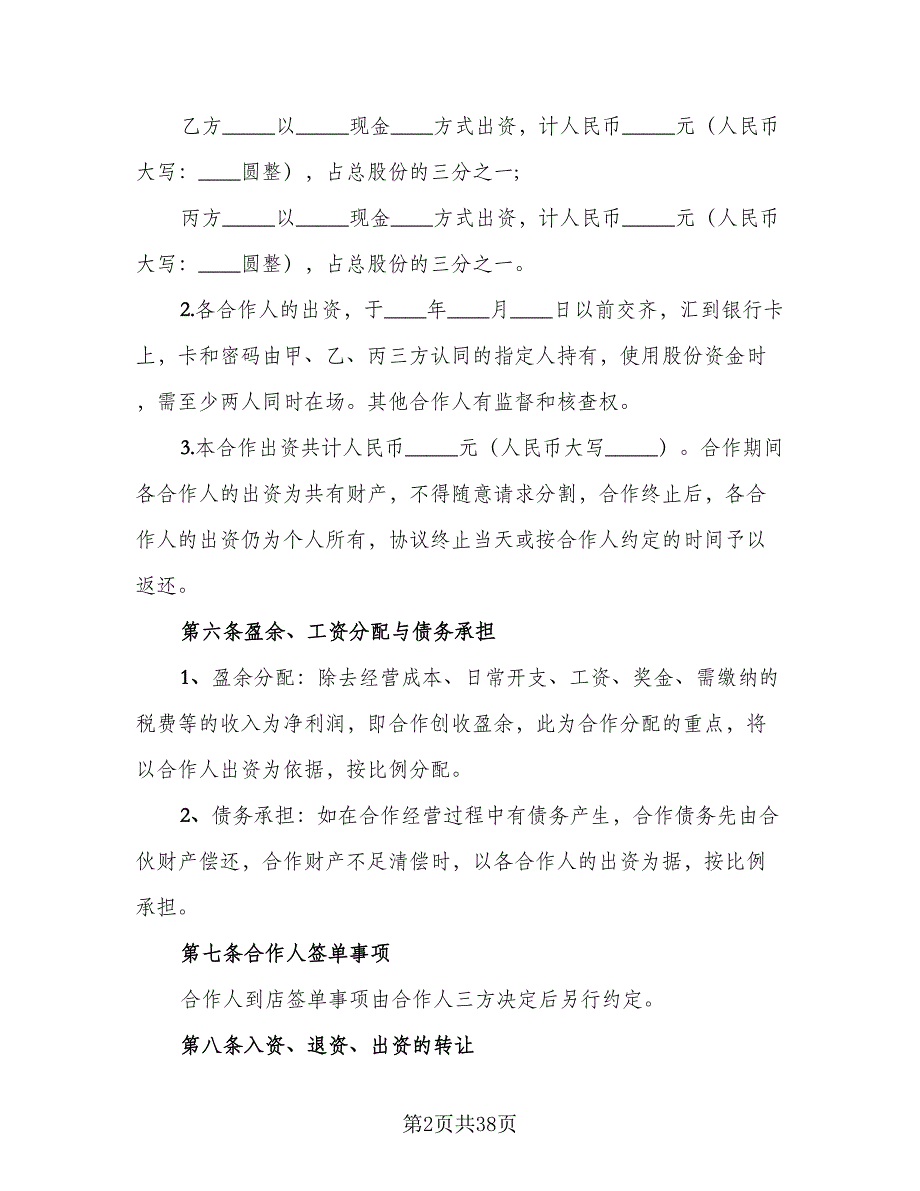 乙方_____以_____现金____方式出资，计人民币_____元（人民币
大写：____圆整），占总股份的三分之一;
丙方_____以_____现金____方式出资，计人民币_____元（人民币
大写：____圆整），占总股份的三分之一。
2.各合作人的出资，于____年____月____日以前交齐，汇到银行卡
上，卡和密码由甲、乙、丙三方认同的指定人持有，使用股份资金时
，需至少两人同时在场。其他合作人有监督和核查权。
3.本合作出资共计人民币_____元（人民币大写_____）。合作期间
各合作人的出资为共有财产，不得随意请求分割，合作终止后，各合
作人的出资仍为个人所有，协议终止当天或按合作人约定的时间予以
返还。
第六条盈余、工资分配与债务承担
1、盈余分配：除去经营成本、日常开支、工资、奖金、需缴纳的
税费等的收入为净利润，即合作创收盈余，此为合作分配的重点，将
以合作人出资为依据，按比例分配。
2、债务承担：如在合作经营过程中有债务产生，合作债务先由合
伙财产偿还，合作财产不足清偿时，以各合作人的出资为据，按比例
承担。
第七条合作人签单事项
合作人到店签单事项由合作人三方决定后另行约定。
第八条入资、退资、出资的转让
第2页共38页